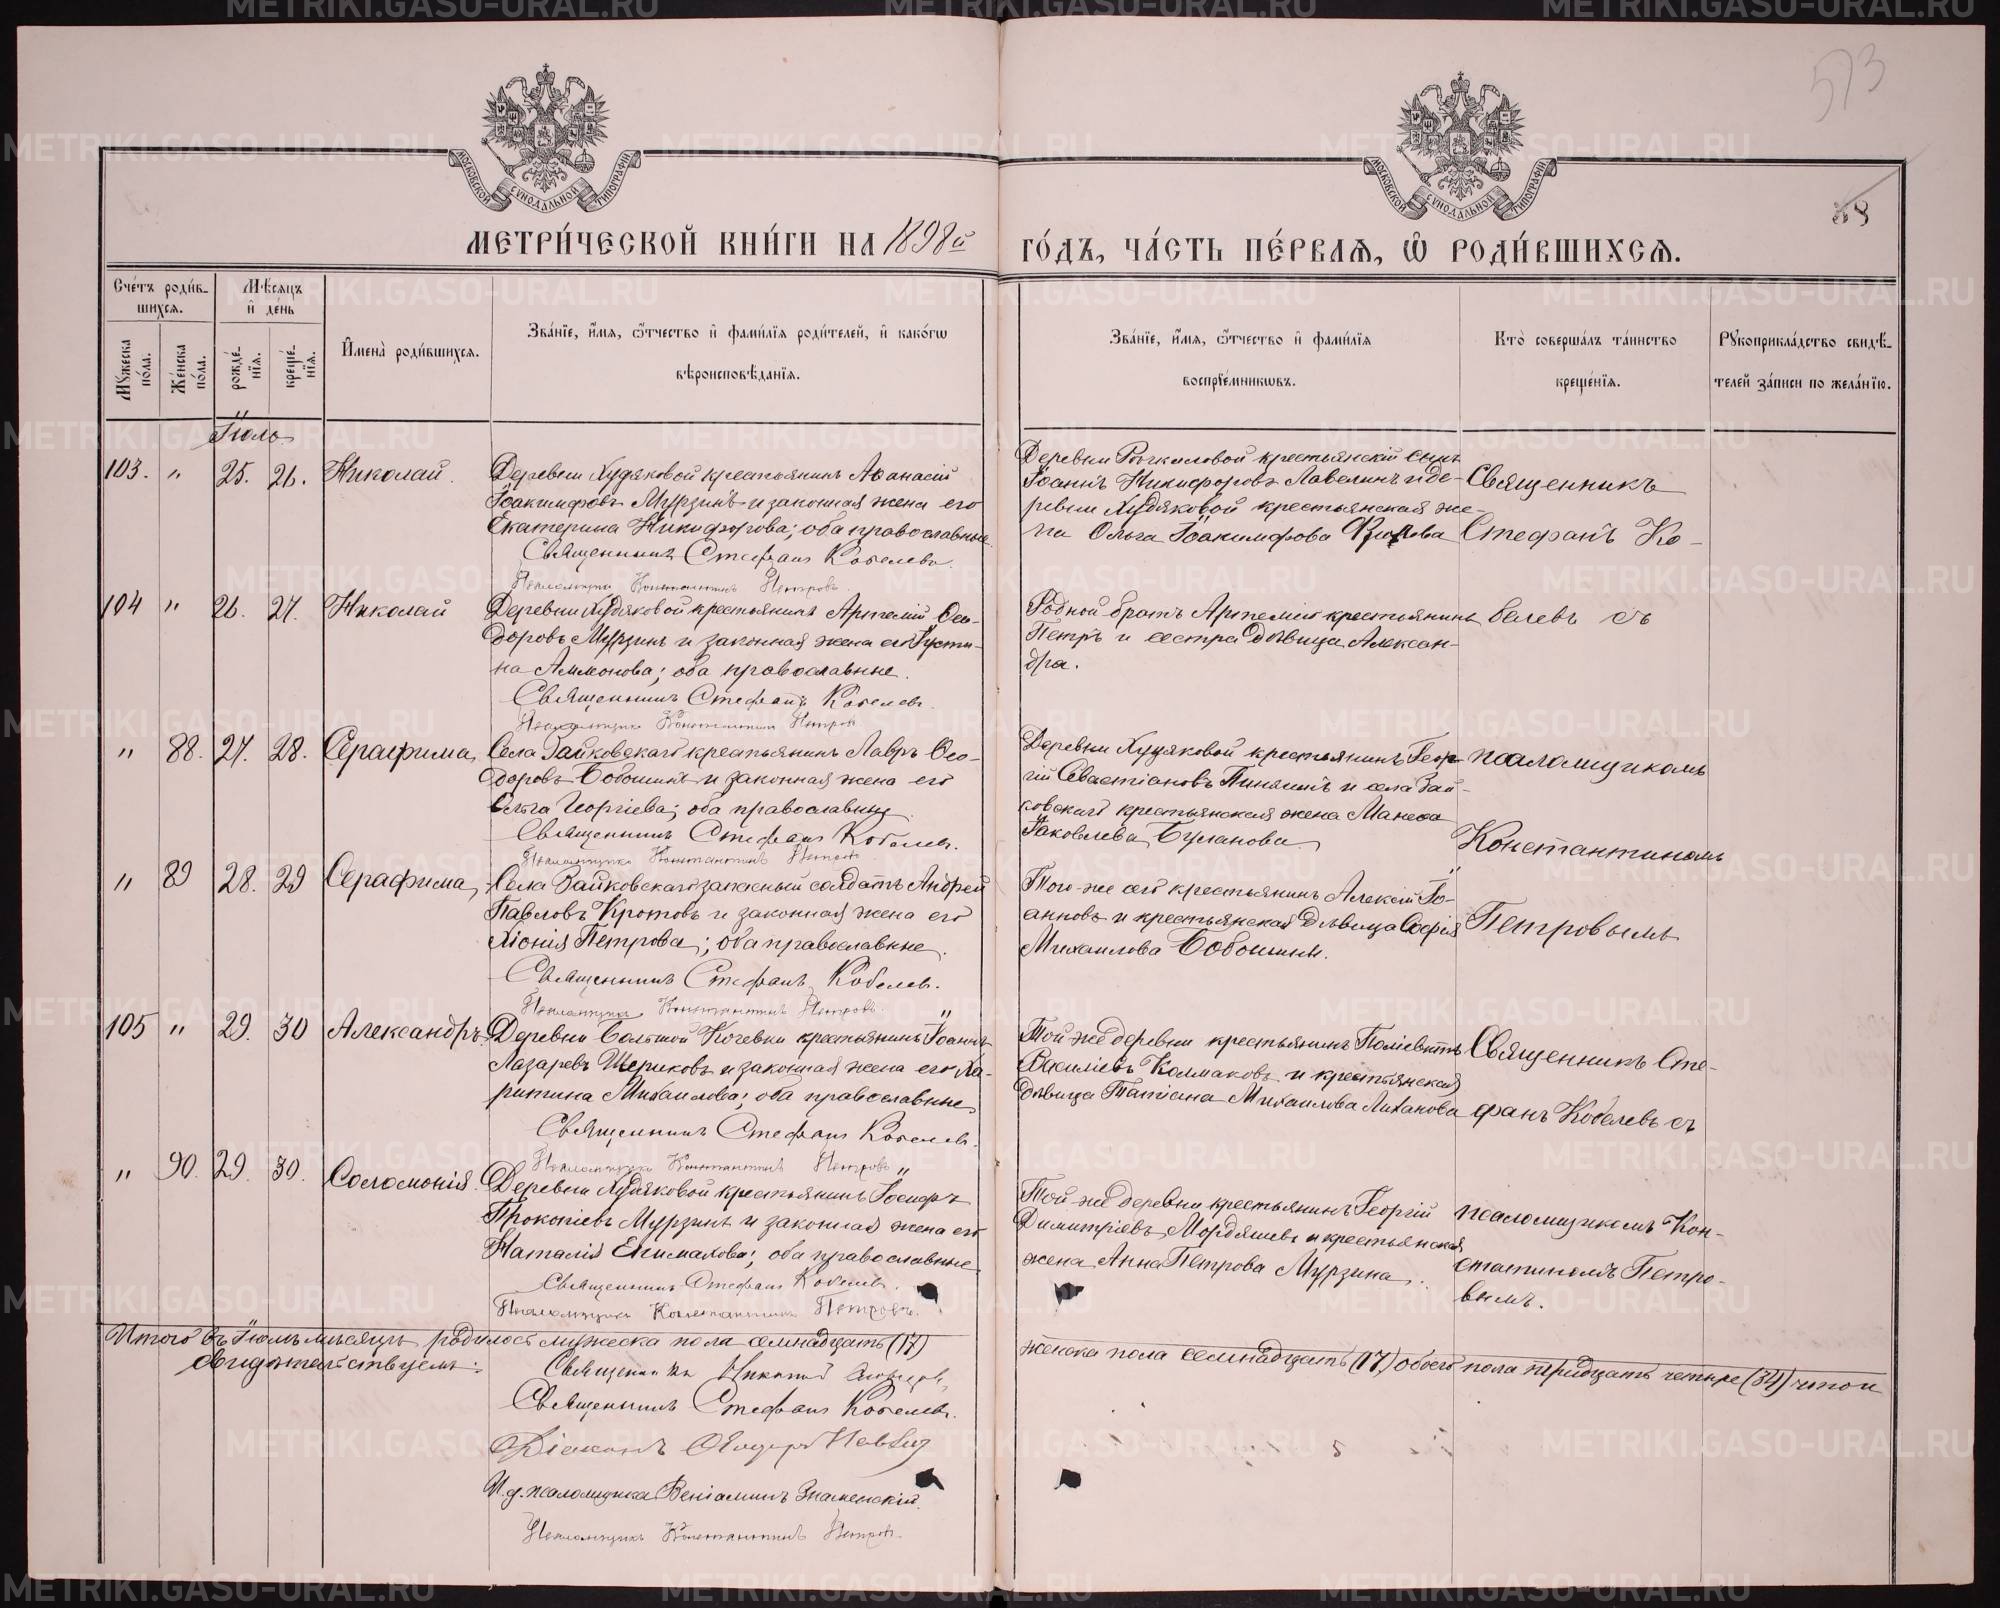 573
МОСКОВСКОЙ СѴНОДАЛЬНОЙ ТИПОГРАФІИ
МОСКОВСКОЙ СѴНОДАЛЬНОЙ ТИПОГРАФІИ
58
МЕТРИ́ЧЕСКОЙ КНИ́ГИ НА 1898й
ГО́ДЪ, ЧА́СТЬ ПЕ́РВАѦ, Ѡ҆ РОДИ́ВШИХСѦ.
Сче́тъ роди́в-
шихсѧ.
Мꙋ́жеска по́ла.
Же́нска по́ла.
Мѣ́сѧцъ и҆ де́нь
рожде́-нїѧ.
креще́-нїѧ.
И҆мена̀ роди́вшихсѧ.
Зва́нїе, и҆́мѧ, ѻ҆́тчество и҆ фами́лїѧ роди́телей, и҆ како́гѡ
вѣроисповѣ́данїѧ.
Зва́нїе, и҆́мѧ, ѻ҆́тчество и҆ фами́лїѧ
воспрїе́мникѡвъ.
Кто̀ соверша́лъ та́инство
креще́нїѧ.
Рꙋкоприкла́дство свидѣ́-
телей за́писи по жела́нїю.
Іюль
103. " 25. 26. Николай.
Деревни Худяковой крестьянинъ Аѳанасій
Іоакимфовъ Мурзинъ и законная жена его
Екатерина Никифорова; оба православные.
Священникъ Стефанъ Кобелевъ.
Псаломщикъ Константинъ Петровъ.
Деревни крестьянскій сынъ
Іоаннъ Никифоровъ Лавелинъ и де-
ревни Худяковой крестьянская же-
на Ольга Іоакимфова
Священникъ
Стефанъ Ко-
104 " 26. 27. Николай
Деревни Худяковой крестьянинъ Артемій Ѳео-
доровъ Мурзинъ и законная жена его Іусти-
на Аммонова; оба православные.
Священникъ Стефанъ Кобелевъ.
Псаломщикъ Константинъ Петровъ
Родной братъ Артемія крестьянинъ
Петръ и сестра дѣвица Алексан-
дра.
белевъ съ
" 88. 27. 28. Серафима,
Села Зайковскаго крестьянинъ Лавръ Ѳео-
доровъ Бобошинъ и законная жена его
Ольга Георгіева; оба православные.
Священникъ Стефанъ Кобелевъ.
Псаломщикъ Константинъ Петровъ
Деревни Худяковой крестьянинъ Геор-
гій Севастіановъ и села Зай-
ковскаго крестьянская жена
Іаковлева Буланова
псаломщикомъ
Константиномъ
" 89 28. 29 Серафима,
Села Зайковскаго запасный солдатъ Андрей
Павловъ Кротовъ и законная жена его
Хіонія Петрова; оба православные.
Священникъ Стефанъ Кобелевъ.
Псаломщикъ Константинъ Петровъ.
Того-же села крестьянинъ Алексій Іо-
анновъ и крестьянская дѣвица Софія
Михаилова Бобошины.
Петровымъ
105 " 29. 30 Александръ.
Деревни Большой Кочевки крестьянинъ Іоаннъ
Лазаревъ Шериковъ и законная жена его Ха-
ритина Михаилова; оба православные,
Священникъ Стефанъ Кобелевъ.
Псаломщикъ Константинъ Петровъ
Той-же деревни крестьянинъ Поліевктъ
Василіевъ Колмаковъ и крестьянская
дѣвица Татіана Михаилова Лиханова
Священникъ Сте-
фанъ Кобелевъ съ
" 90. 29. 30. Соломонія.
Деревни Худяковой крестьянинъ Іосифъ
Прокопіевъ Мурзинъ и законная жена его
Наталія Епимахова; оба православные
Священникъ Стефанъ Кобелевъ.
Псаломщикъ Константинъ Петровъ.
Той-же деревни крестьянинъ Георгій
Димитріевъ Мордяшевъ и крестьянская
жена Анна Петрова Мурзина.
псаломщикомъ Кон-
стантиномъ Петро-
вымъ.
Итого въ Іюлѣ мѣсяцѣ родилось мужеска пола семнадцать (17)
женска пола семнадцать (17), обоего пола тридцать четыре (34) что и
свидѣтельствуемъ:
Священникъ Николай
Священникъ Стефанъ Кобелевъ.
Діаконъ Ѳеодоръ
И. д. псаломщика Веніаминъ Знаменскій.
Псаломщикъ Константинъ Петровъ.
METRIKI.GASO-URAL.RU